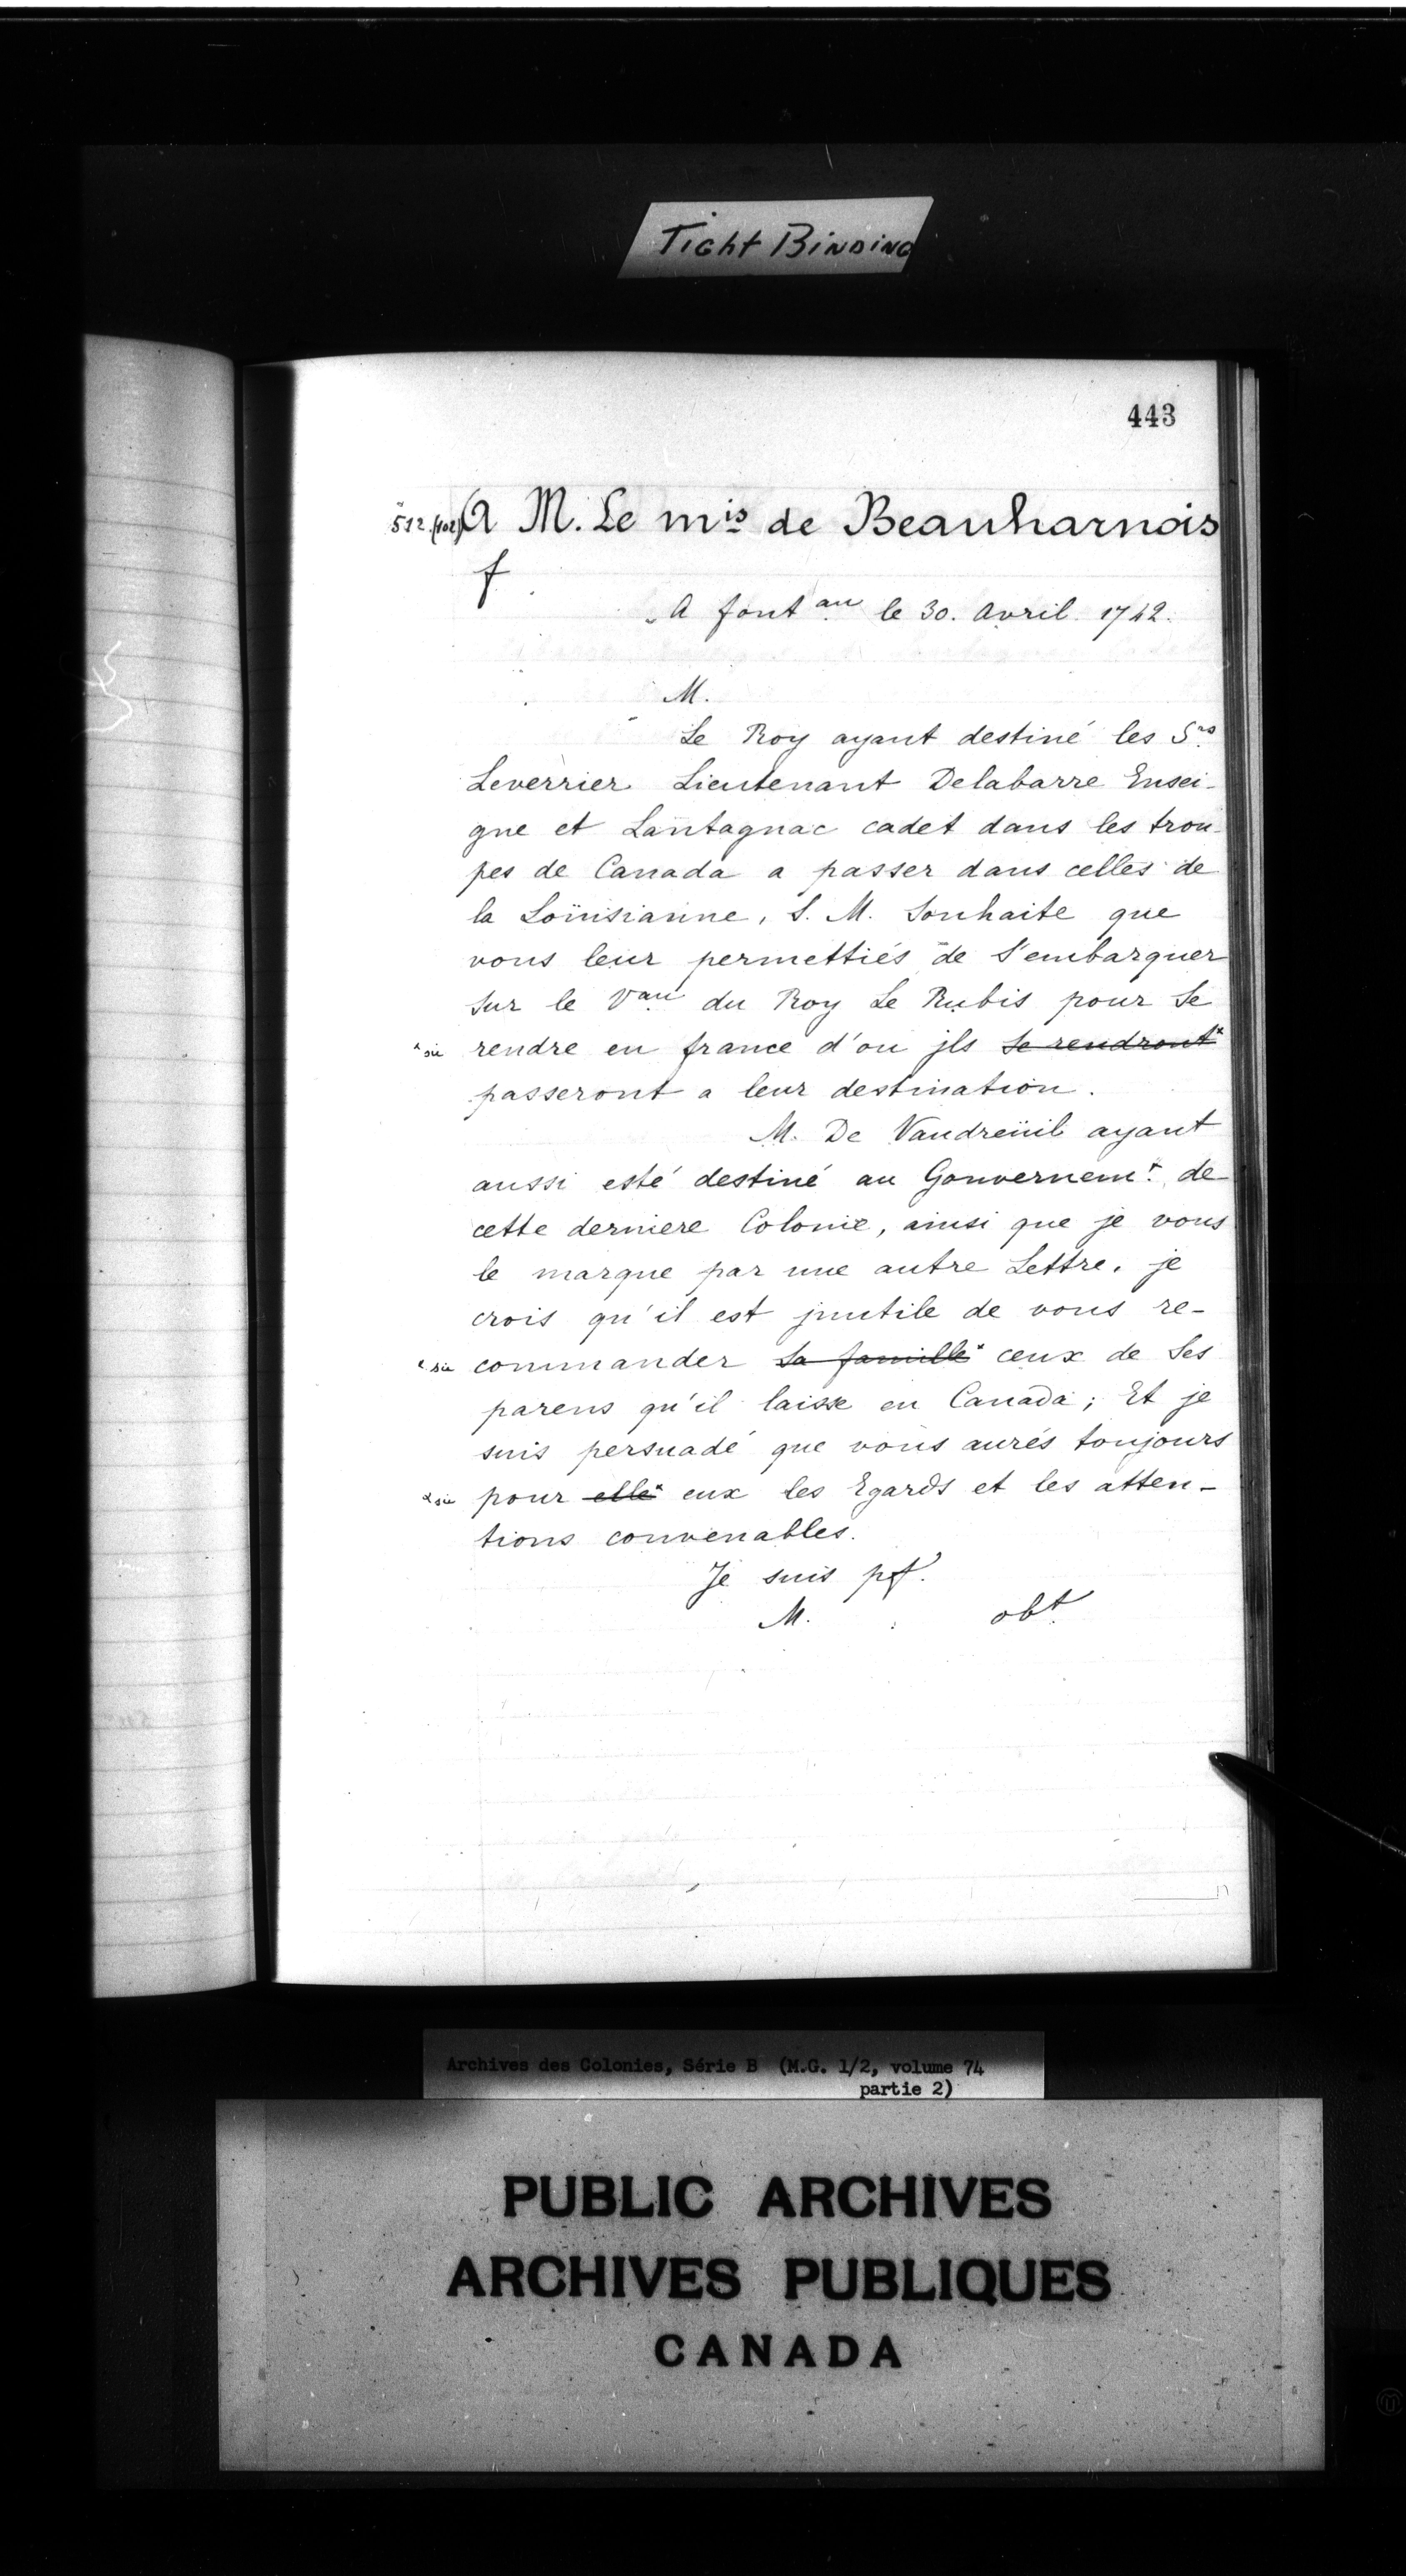 Tight Binding
443
512 (102) A M. Le mis de Beauharnois
f
A fontau le 30. Avril 1742.
M.
Le Roy ayant destiné les Srs
Leverrier Lieutenant Delabarre Ensei-
gne et Lantagnac cadet dans les trou-
pes de Canada a passer dans celles de
la Loüisianne, S. M. Souhaite que
vous leur permettiés de S'embarquer
Sur le Vau du Roy Le Rubis pour Se
* sic rendre en france d'ou jls Se rendront*
passeront a leur destination.
M. De Vaudreüil ayant
aussi esté destiné au Gouvernemt. de
cette derniere Colonie, ainsi que je vous
le marque par une autre Lettre, je
crois qu'il est jnutile de vous re-
* sic commander Sa famille* ceux de Ses
parens qu'il laisse en Canada; Et je
suis persuadé que vous aurés toujours
* sic pour elle* eux les Egards et les atten-
tions convenables.
Je suis pft.
M. obt
Archives des Colonies, Série B (M.G. 1/2, volume 74
partie 2)
PUBLIC ARCHIVES
ARCHIVES PUBLIQUES
CANADA